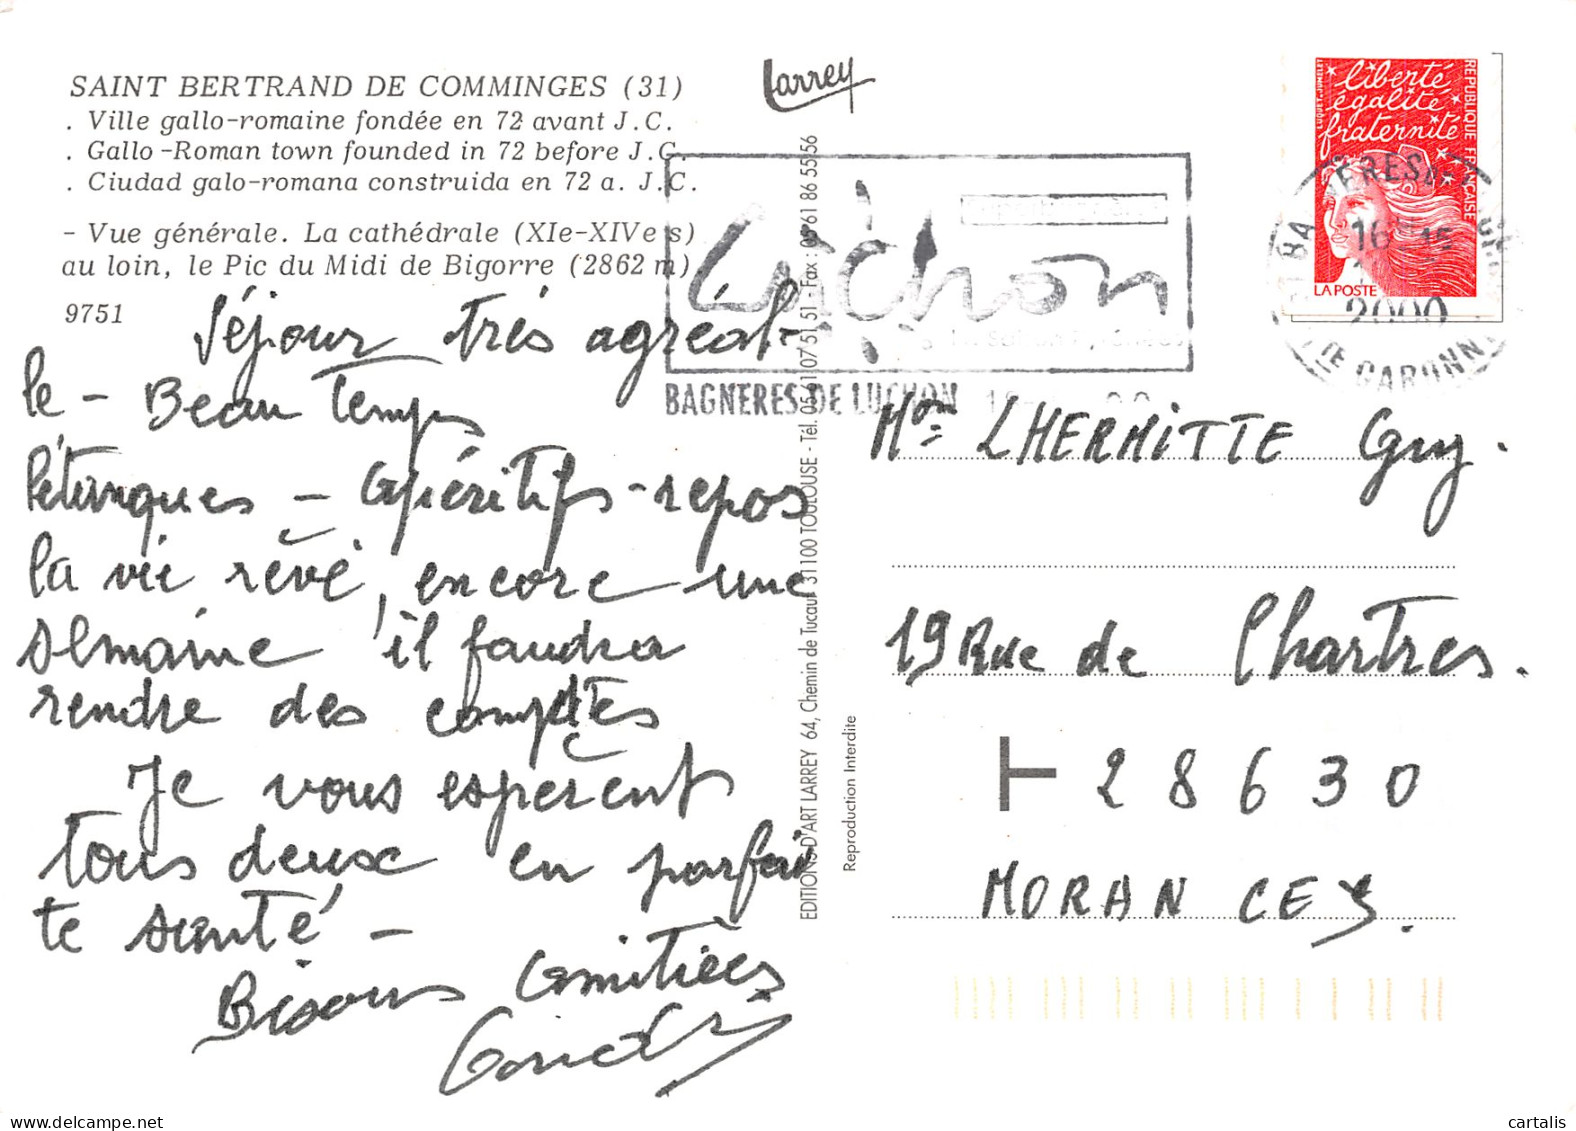 SAINT BERTRAND DE COMMINGES (31)
. Ville gallo-romaine fondée en 72 avant J.C.
. Gallo-Roman town founded in 72 before J.C.
. Ciudad galo-romana construida en 72 a. J.C.
- Vue générale. La cathédrale (XIe-XIVe s)
au loin, le Pic du Midi de Bigorre (2862 m)
9751
Séjour très agréab-
le - Beau Temps
Pétanques - apéritifs - repos
la vie rêvé, encore une
semaine il faudra
rendre des comptes
Je vous espèrent
tous deux en parfai
te santé -
Bisous amitiées
Larrey
EDITIONS D'ART LARREY 64, Chemin de Tucaut 31100 TOULOUSE - Tél. 05 61 07 51 51 - Fax : 05 61 86 55 56
Reproduction Interdite
Luchon
BAGNERES DE LUCHON
liberté
égalité
fraternité
REPUBLIQUE FRANÇAISE
LA POSTE
16 15
2000
HTE GARONNE
LHERMITTE Guy.
19 Rue de Chartres.
28630
MORANCEZ.
cartalis